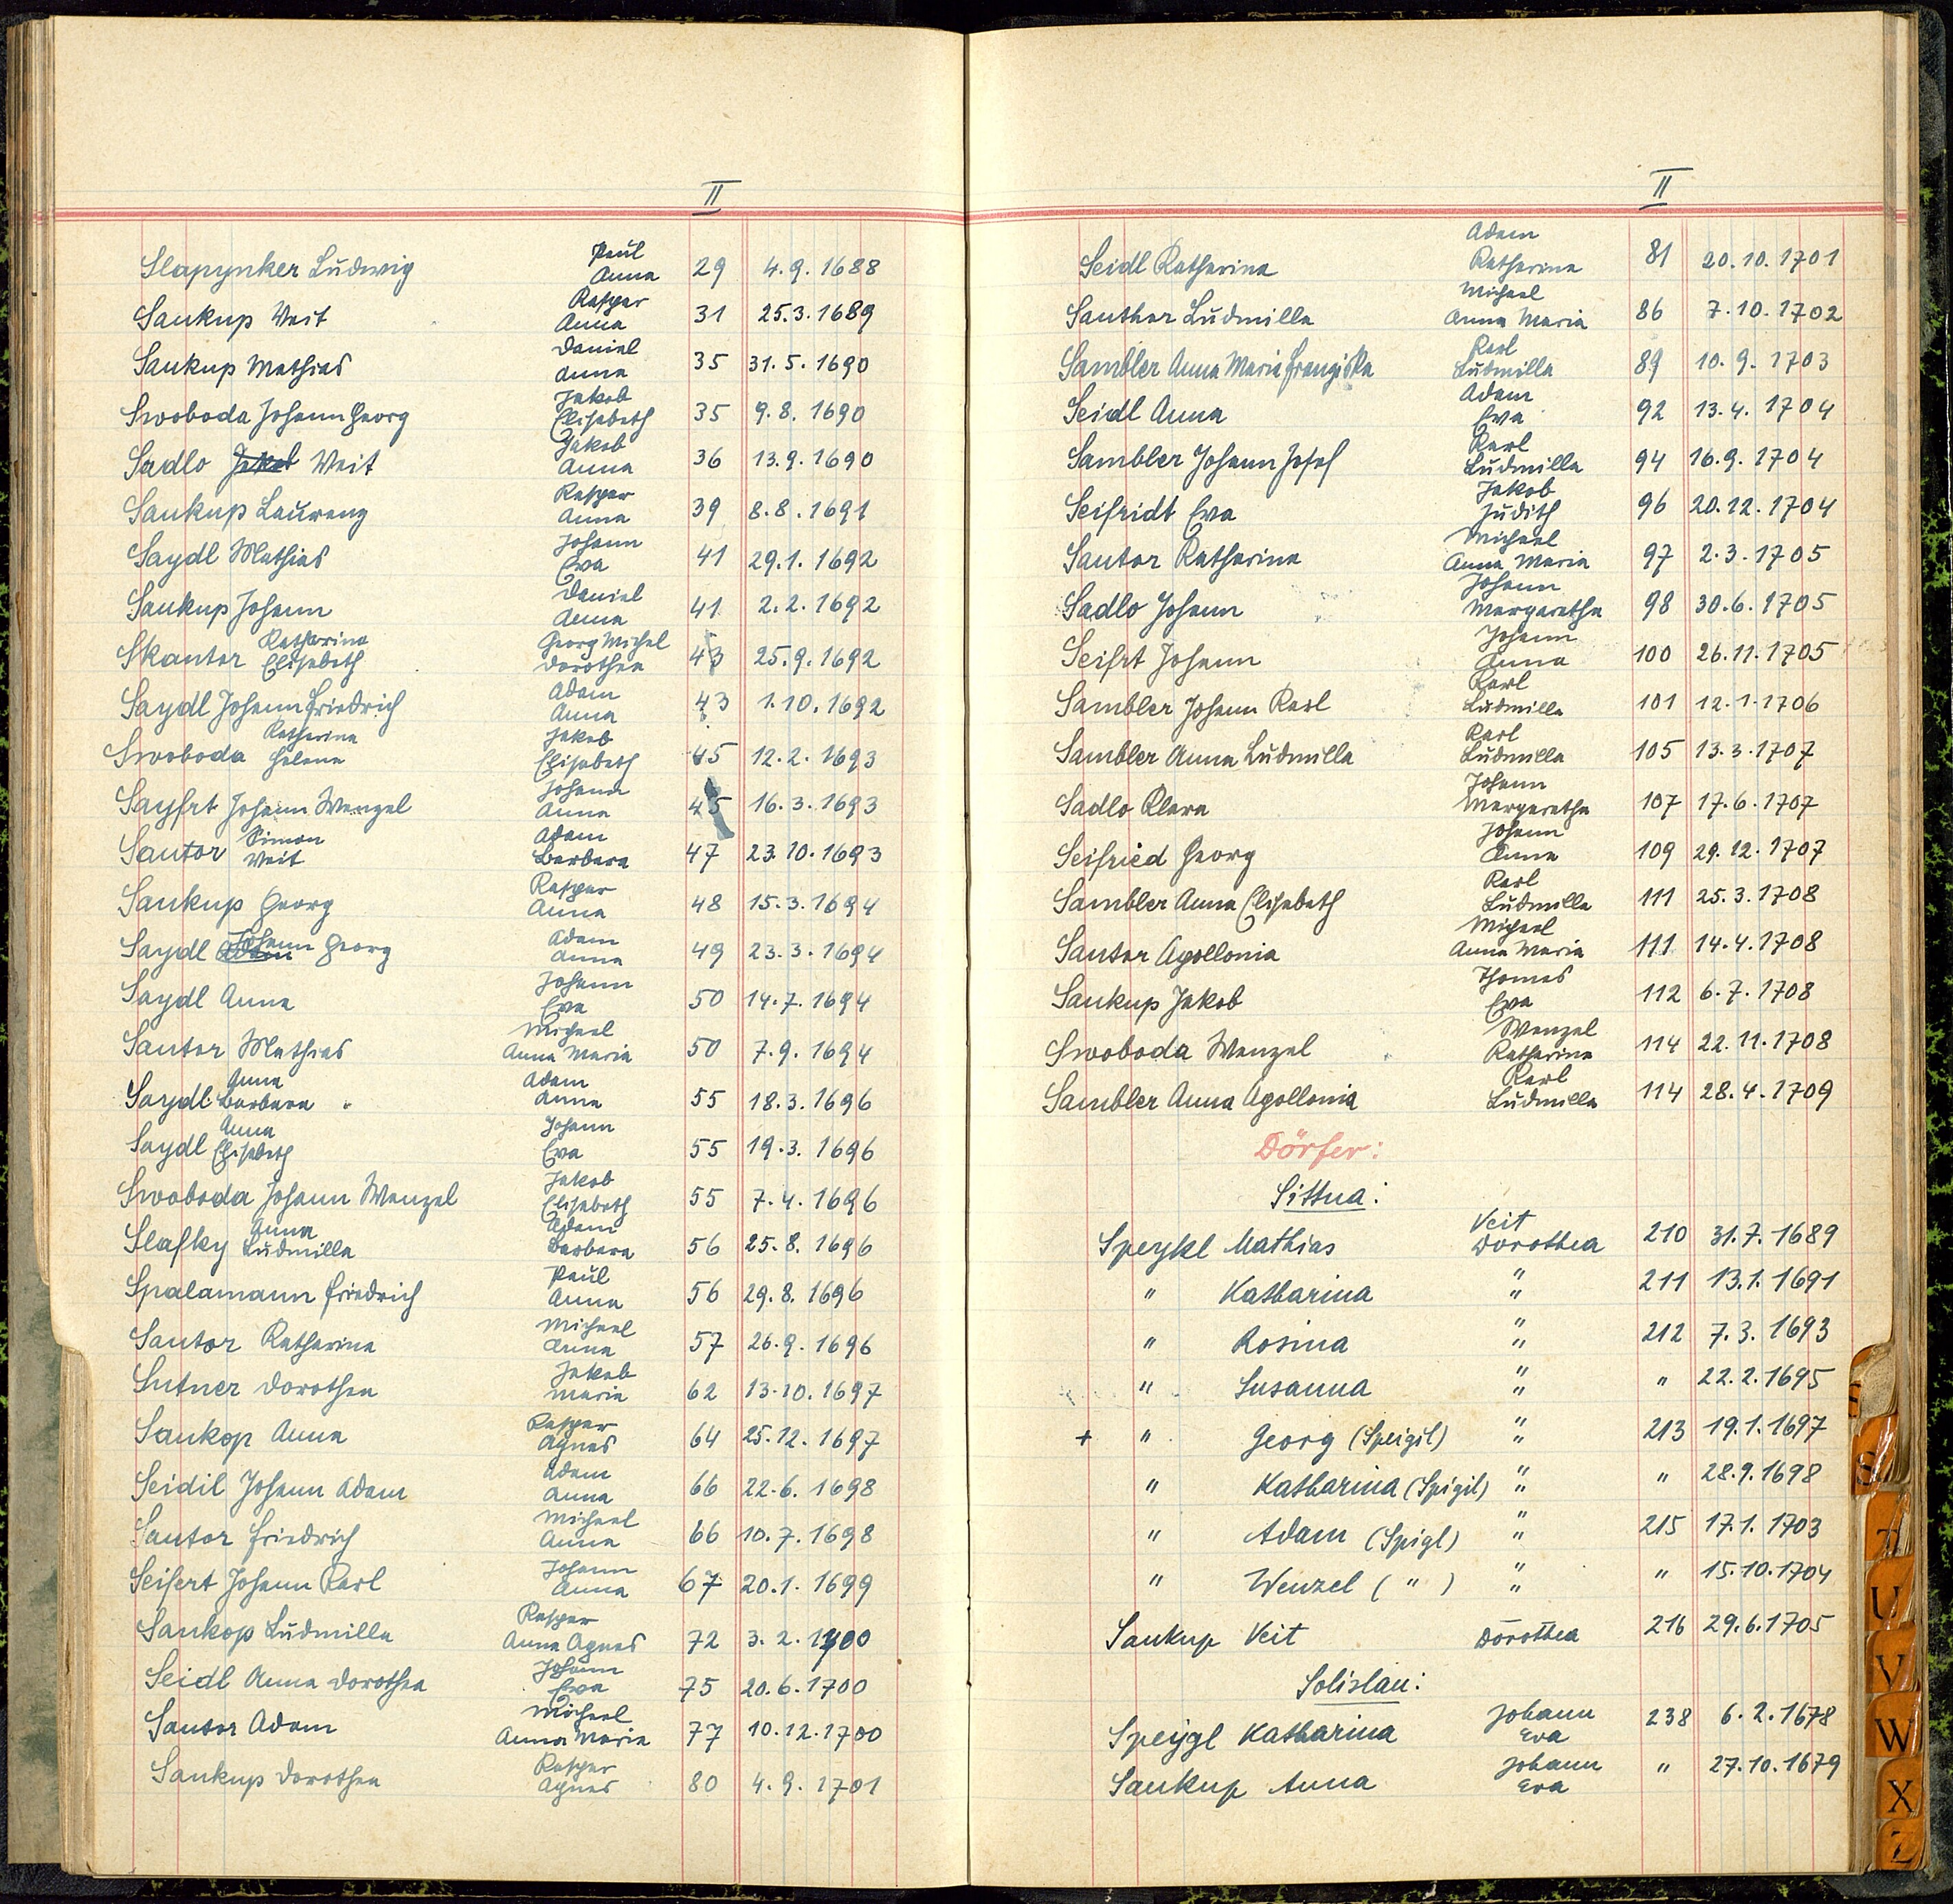 II
Slapynker Ludwig Paul Anna 29 4.9.1688
Saukup Veit Kaspar Anna 31 25.3.1689
Saukup Mathias Daniel Anna 35 31.5.1690
Swoboda Johann Georg Jakob Elisabeth 35 9.8.1690
Sadlo Jakob Veit Jakob Anna 36 13.9.1690
Saukup Laurenz Kaspar Anna 39 8.8.1691
Saydl Mathias Johann Eva 41 29.1.1692
Saukup Johann Daniel Anna 41 2.2.1692
Skantor Katharina Elisabeth Georg Michel Dorothea 43 25.9.1692
Saydl Johann Friedrich Adam Anna 43 1.10.1692
Swoboda Katharina Helena Jakob Elisabeth 45 12.2.1693
Sayfrt Johann Wenzel Johann Anna 45 16.3.1693
Santor Simon Veit Adam Barbara 47 23.10.1693
Saukup Georg Kaspar Anna 48 15.3.1694
Saydl Adam Johann Georg Adam Anna 49 23.3.1694
Saydl Anna Johann Eva 50 14.7.1694
Santor Mathias Michael Anna Maria 50 7.9.1694
Saydl Anna Barbara Adam Anna 55 18.3.1696
Saydl Anna Elisabeth Johann Eva 55 19.3.1696
Swoboda Johann Wenzel Jakob Elisabeth 55 7.4.1696
Slafky Anna Ludmilla Adam Barbara 56 25.8.1696
Spalamann Friedrich Paul Anna 56 29.8.1696
Santor Katharina Michael Anna 57 26.9.1696
Sutner Dorothea Jakob Maria 62 13.10.1697
Saukop Anna Kaspar Agnes 64 25.12.1697
Seidil Johann Adam Adam Anna 66 22.6.1698
Santor Friedrich Michael Anna 66 10.7.1698
Seifert Johann Karl Johann Anna 67 20.1.1699
Saukop Ludmilla Kaspar Anna Agnes 72 3.2.1700
Seidl Anna Dorothea Johann Eva 75 20.6.1700
Santor Adam Michael Anna Maria 77 10.12.1700
Saukup Dorothea Kaspar Agnes 80 4.9.1701
II
Seidl Katharina Adam Katharina 81 20.10.1701
Santhor Ludmilla Michael Anna Maria 86 7.10.1702
Sambler Anna Maria Franziska Karl Ludmilla 89 10.9.1703
Seidl Anna Adam Eva 92 13.4.1704
Sambler Johann Josef Karl Ludmilla 94 16.9.1704
Seifridt Eva Jakob Judith 96 20.12.1704
Santor Katharina Michael Anna Maria 97 2.3.1705
Sadlo Johann Johann Margaretha 98 30.6.1705
Seifrt Johann Johann Anna 100 26.11.1705
Sambler Johann Karl Karl Ludmilla 101 12.1.1706
Sambler Anna Ludmilla Karl Ludmilla 105 13.3.1707
Sadlo Klara Johann Margaretha 107 17.6.1707
Seifried Georg Johann Anna 109 29.12.1707
Sambler Anna Elisabeth Karl Ludmilla 111 25.3.1708
Santor Apollonia Michael Anna Maria 111 14.4.1708
Saukup Jakob Thomas Eva 112 6.7.1708
Swoboda Wenzel Wenzel Katharina 114 22.11.1708
Sambler Anna Apollonia Karl Ludmilla 114 28.4.1709
Dörfer:
Sittna:
Speykl Mathias Veit Dorothea 210 31.7.1689
" Katharina " " 211 13.1.1691
" Rosina " " 212 7.3.1693
" Susanna " " " 22.2.1695
+ " Georg (Speigil) " " 213 19.1.1697
" Katharina (Spigil) " " " 28.9.1698
" Adam (Spigl) " " 215 17.1.1703
" Wenzel ( " ) " " " 15.10.1704
Saukup Veit Dorothea 216 29.6.1705
Solislau:
Speijgl Katharina Johann Eva 238 6.2.1678
Saukup Anna Johann Eva " 27.10.1679
S
T
U
V
W
X
Z